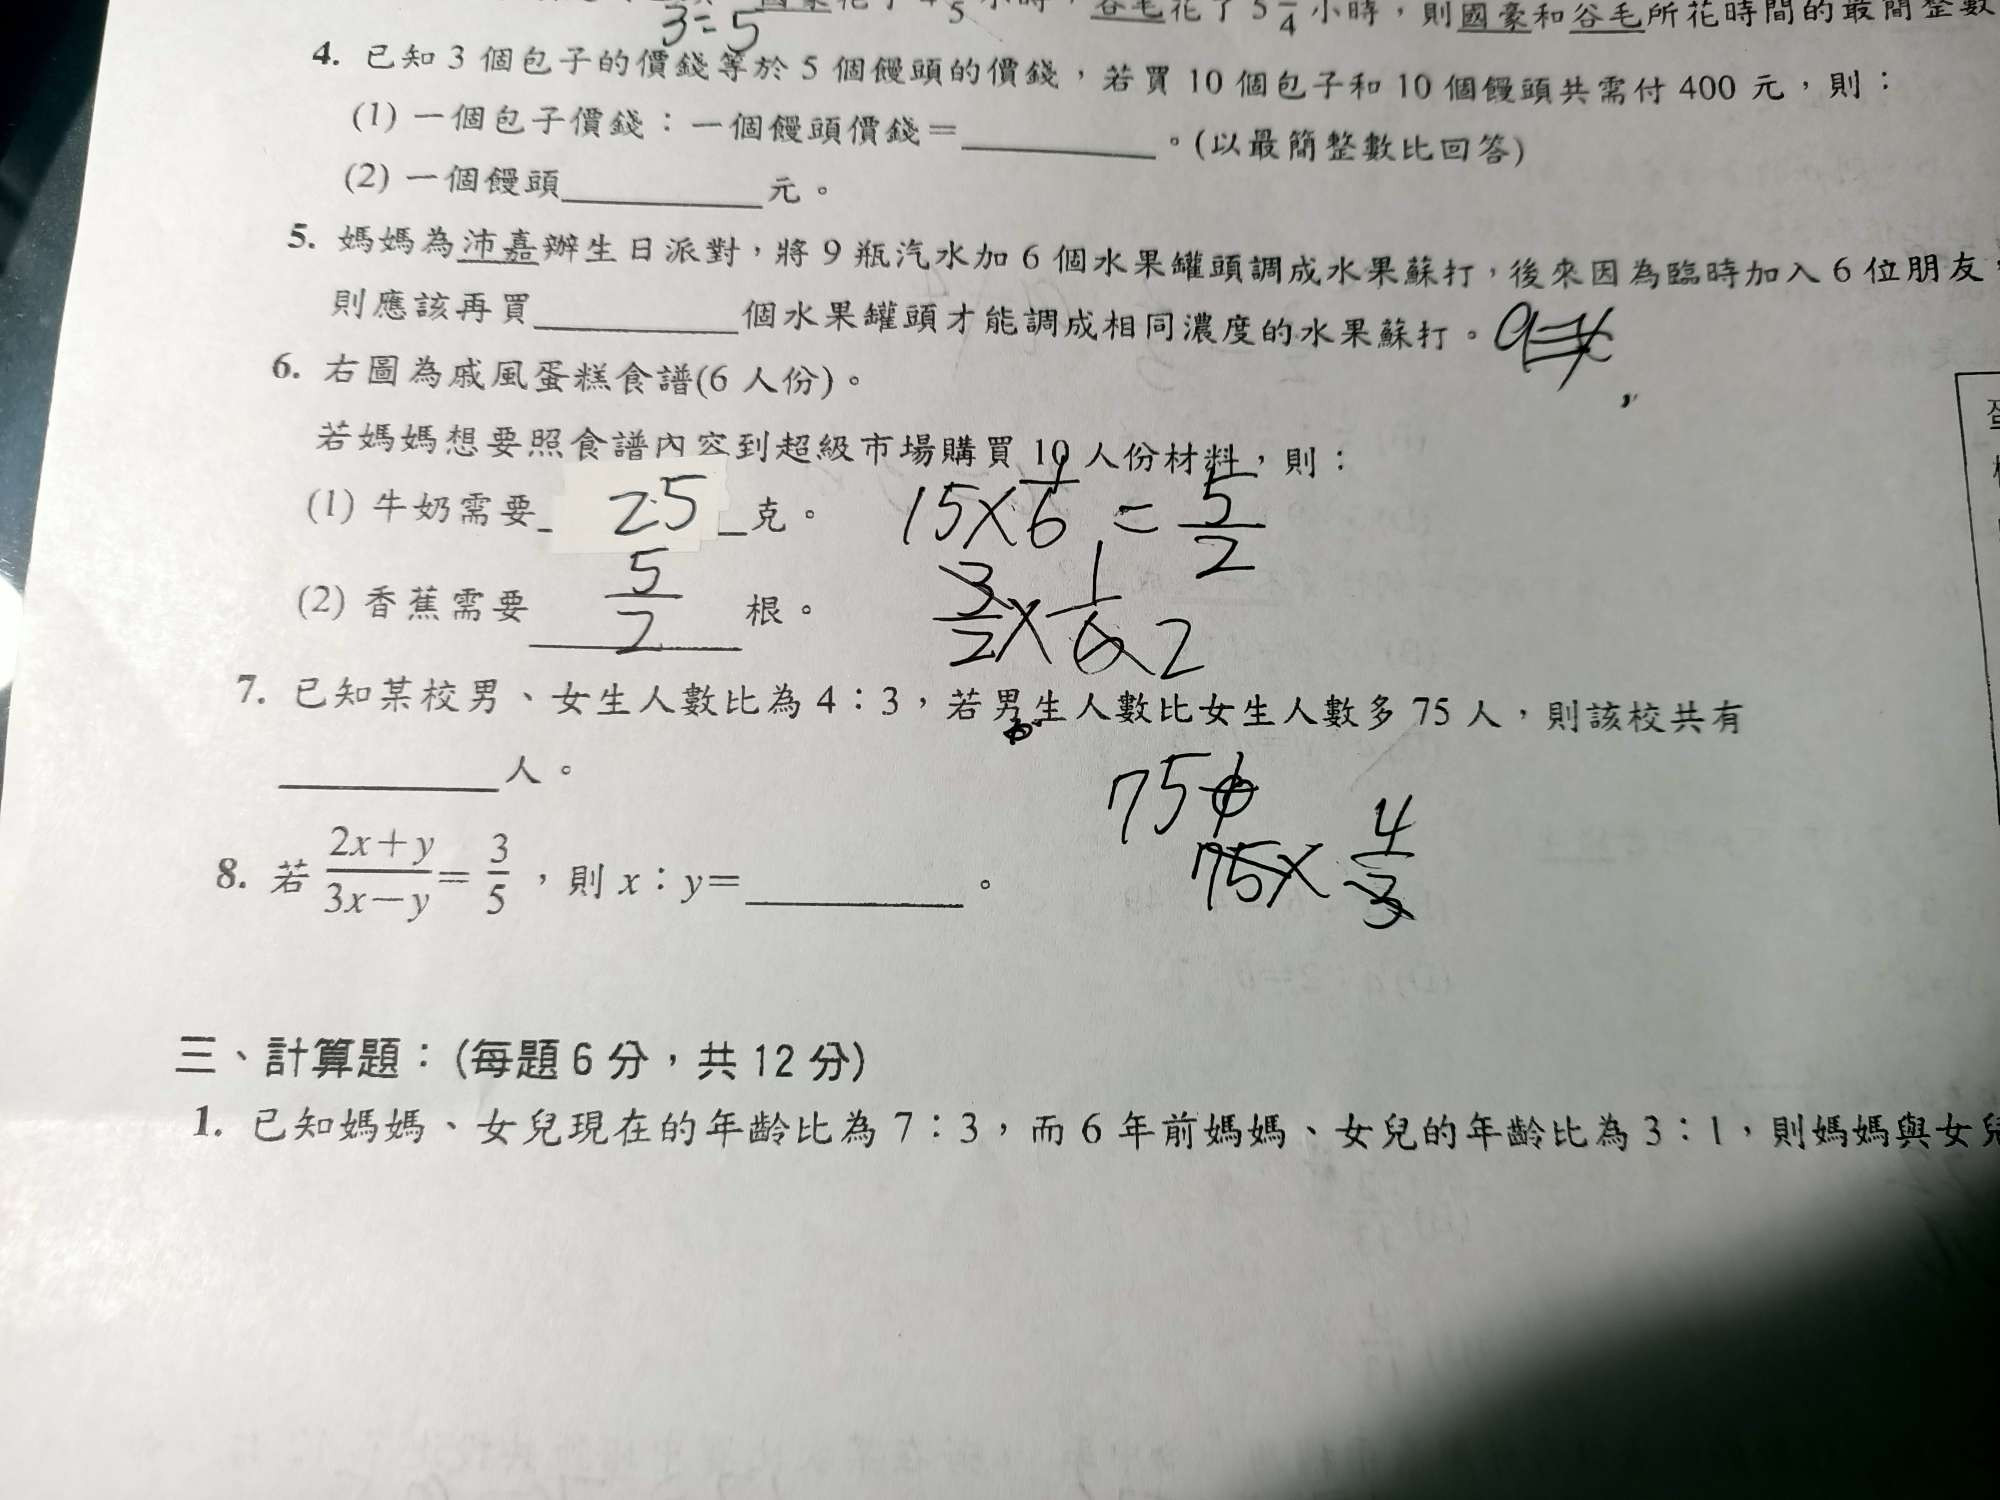 國豪花了 4 /5 小時，谷毛花了 5 /4 小時，則國豪和谷毛所花時間的最簡整數
3=5
4. 已知 3 個包子的價錢等於 5 個饅頭的價錢，若買 10 個包子和 10 個饅頭共需付 400 元，則：
(1) 一個包子價錢：一個饅頭價錢=＿＿＿＿。(以最簡整數比回答)
(2) 一個饅頭＿＿＿＿元。
5. 媽媽為沛嘉辦生日派對，將 9 瓶汽水加 6 個水果罐頭調成水果蘇打，後來因為臨時加入 6 位朋友，
則應該再買＿＿＿＿個水果罐頭才能調成相同濃度的水果蘇打。
6. 右圖為戚風蛋糕食譜(6 人份)。
若媽媽想要照食譜內容到超級市場購買 10 人份材料，則：
(1) 牛奶需要 25 克。 15×1/6 = 5/2
(2) 香蕉需要 5/2 根。 3/2×1/6 2
7. 已知某校男、女生人數比為 4：3，若男生人數比女生人數多 75 人，則該校共有
＿＿＿＿人。
75
75×4/3
8. 若 (2x+y)/(3x−y)=3/5，則 x：y=＿＿＿＿。
三、計算題：(每題 6 分，共 12 分)
1. 已知媽媽、女兒現在的年齡比為 7：3，而 6 年前媽媽、女兒的年齡比為 3：1，則媽媽與女兒